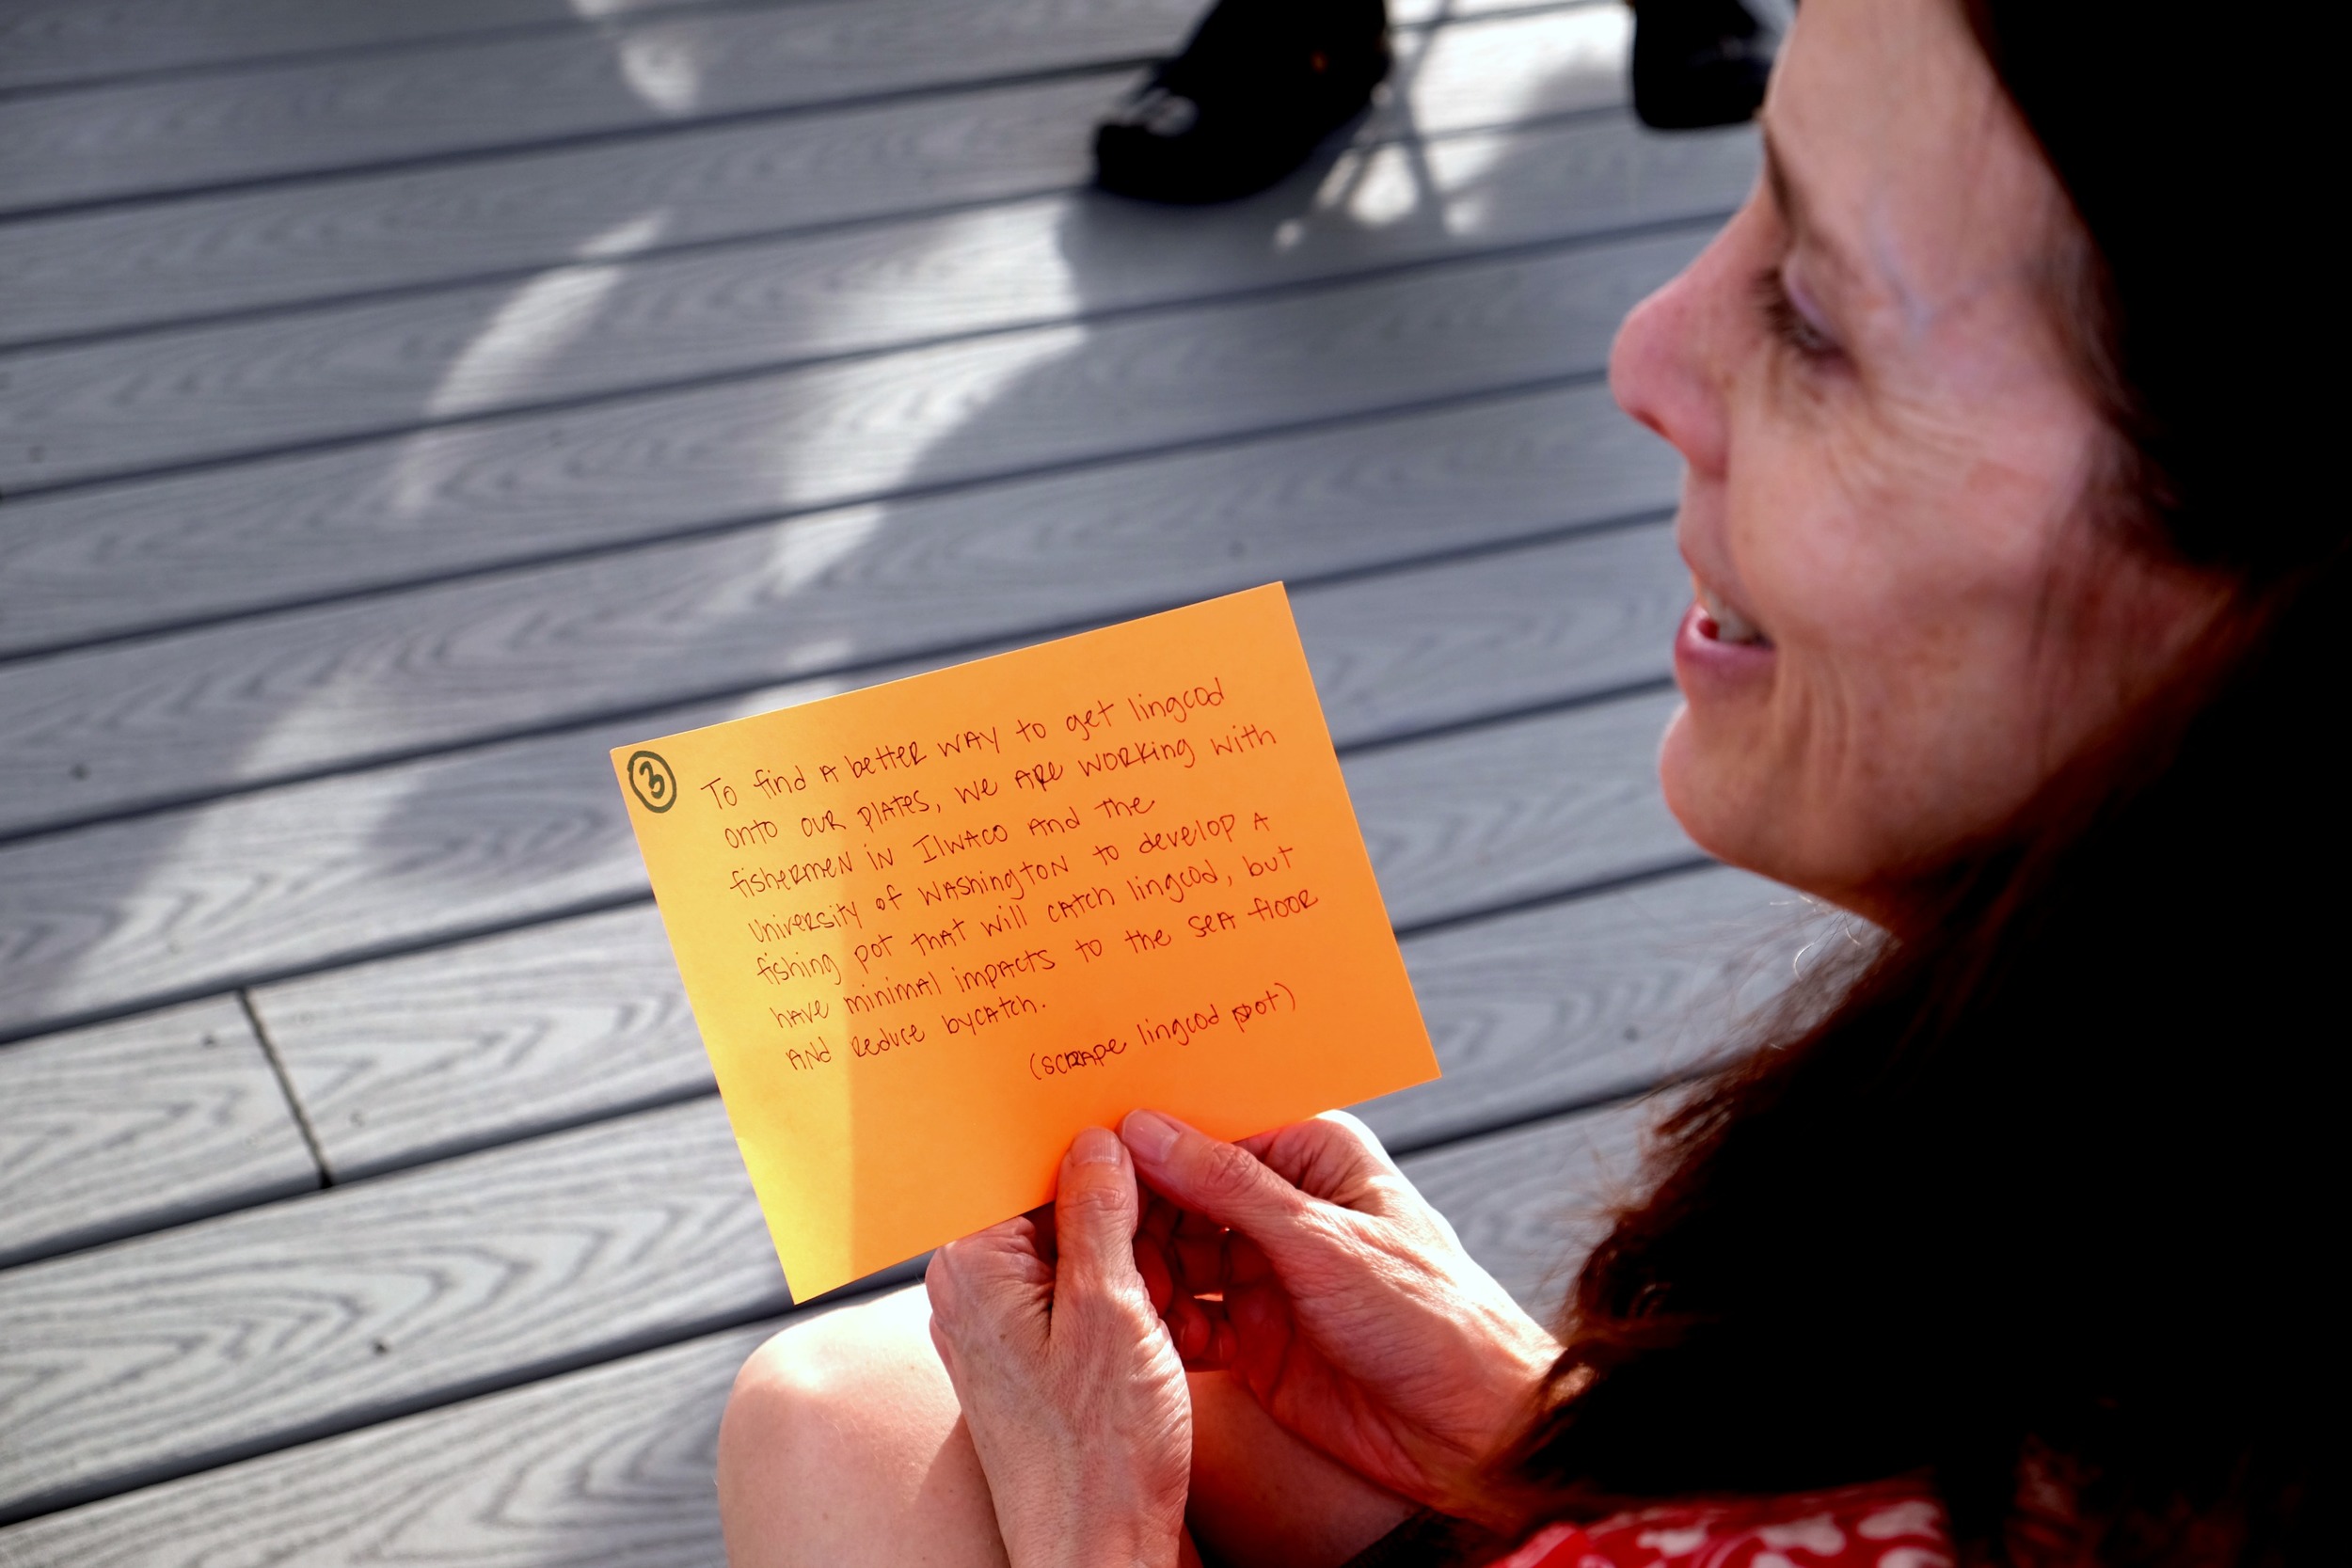 3
To find A better WAY to get lingcod
onto our plAtes, we Are working with
fishermen in IlwAco And the
University of WAshington to develop A
fishing pot thAt will cAtch lingcod, but
hAve minimAl impActs to the seA floor
And reduce bycAtch.
(scrApe lingcod pot)